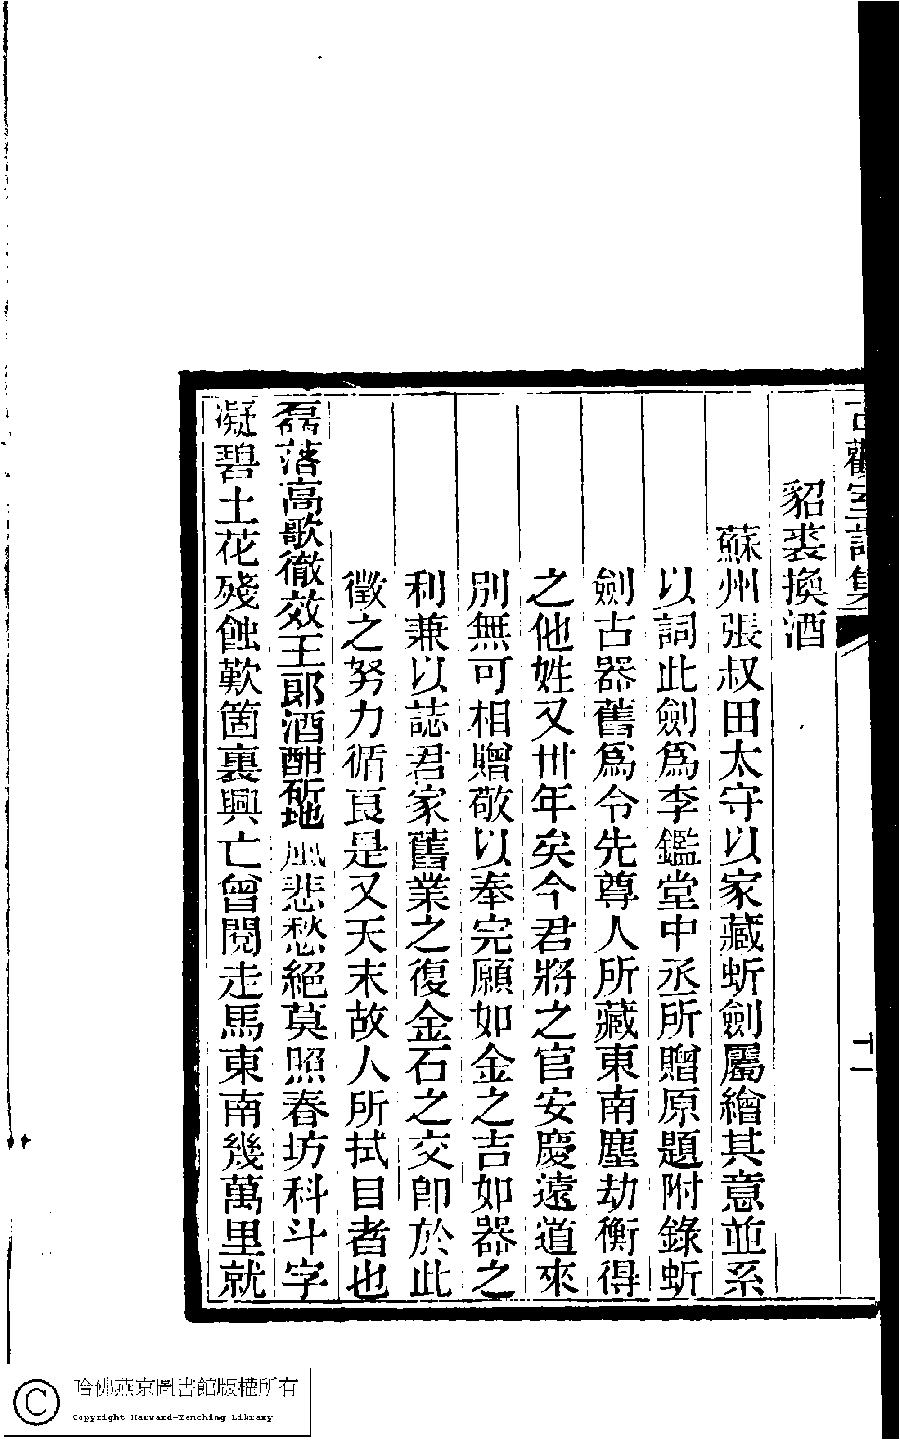 古歡室詩集
十一
貂裘換酒
蘇州張叔田太守以家藏蚸劍屬繪其意並系
以詞此劍為李鑑堂中丞所贈原題附錄蚸
劍古器舊為令先尊人所藏東南塵劫衡得
之他姓又卅年矣今君將之官安慶遠道來
別無可相贈敬以奉完願如金之吉如器之
利兼以誌君家舊業之復金石之交卽於此
徵之努力循良是又天末故人所拭目者也
磊落高歌徹效王郎酒酣斫地悲愁絕莫照春坊科斗字
凝碧土花殘蝕歎箇裏興亡曾閱走馬東南幾萬里就
哈佛燕京圖書館版權所有
Copyright Harvard-Yenching Library